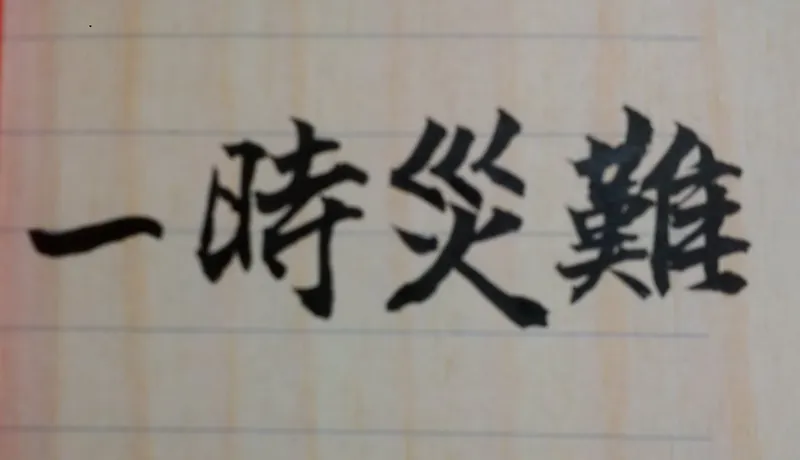 一時災難